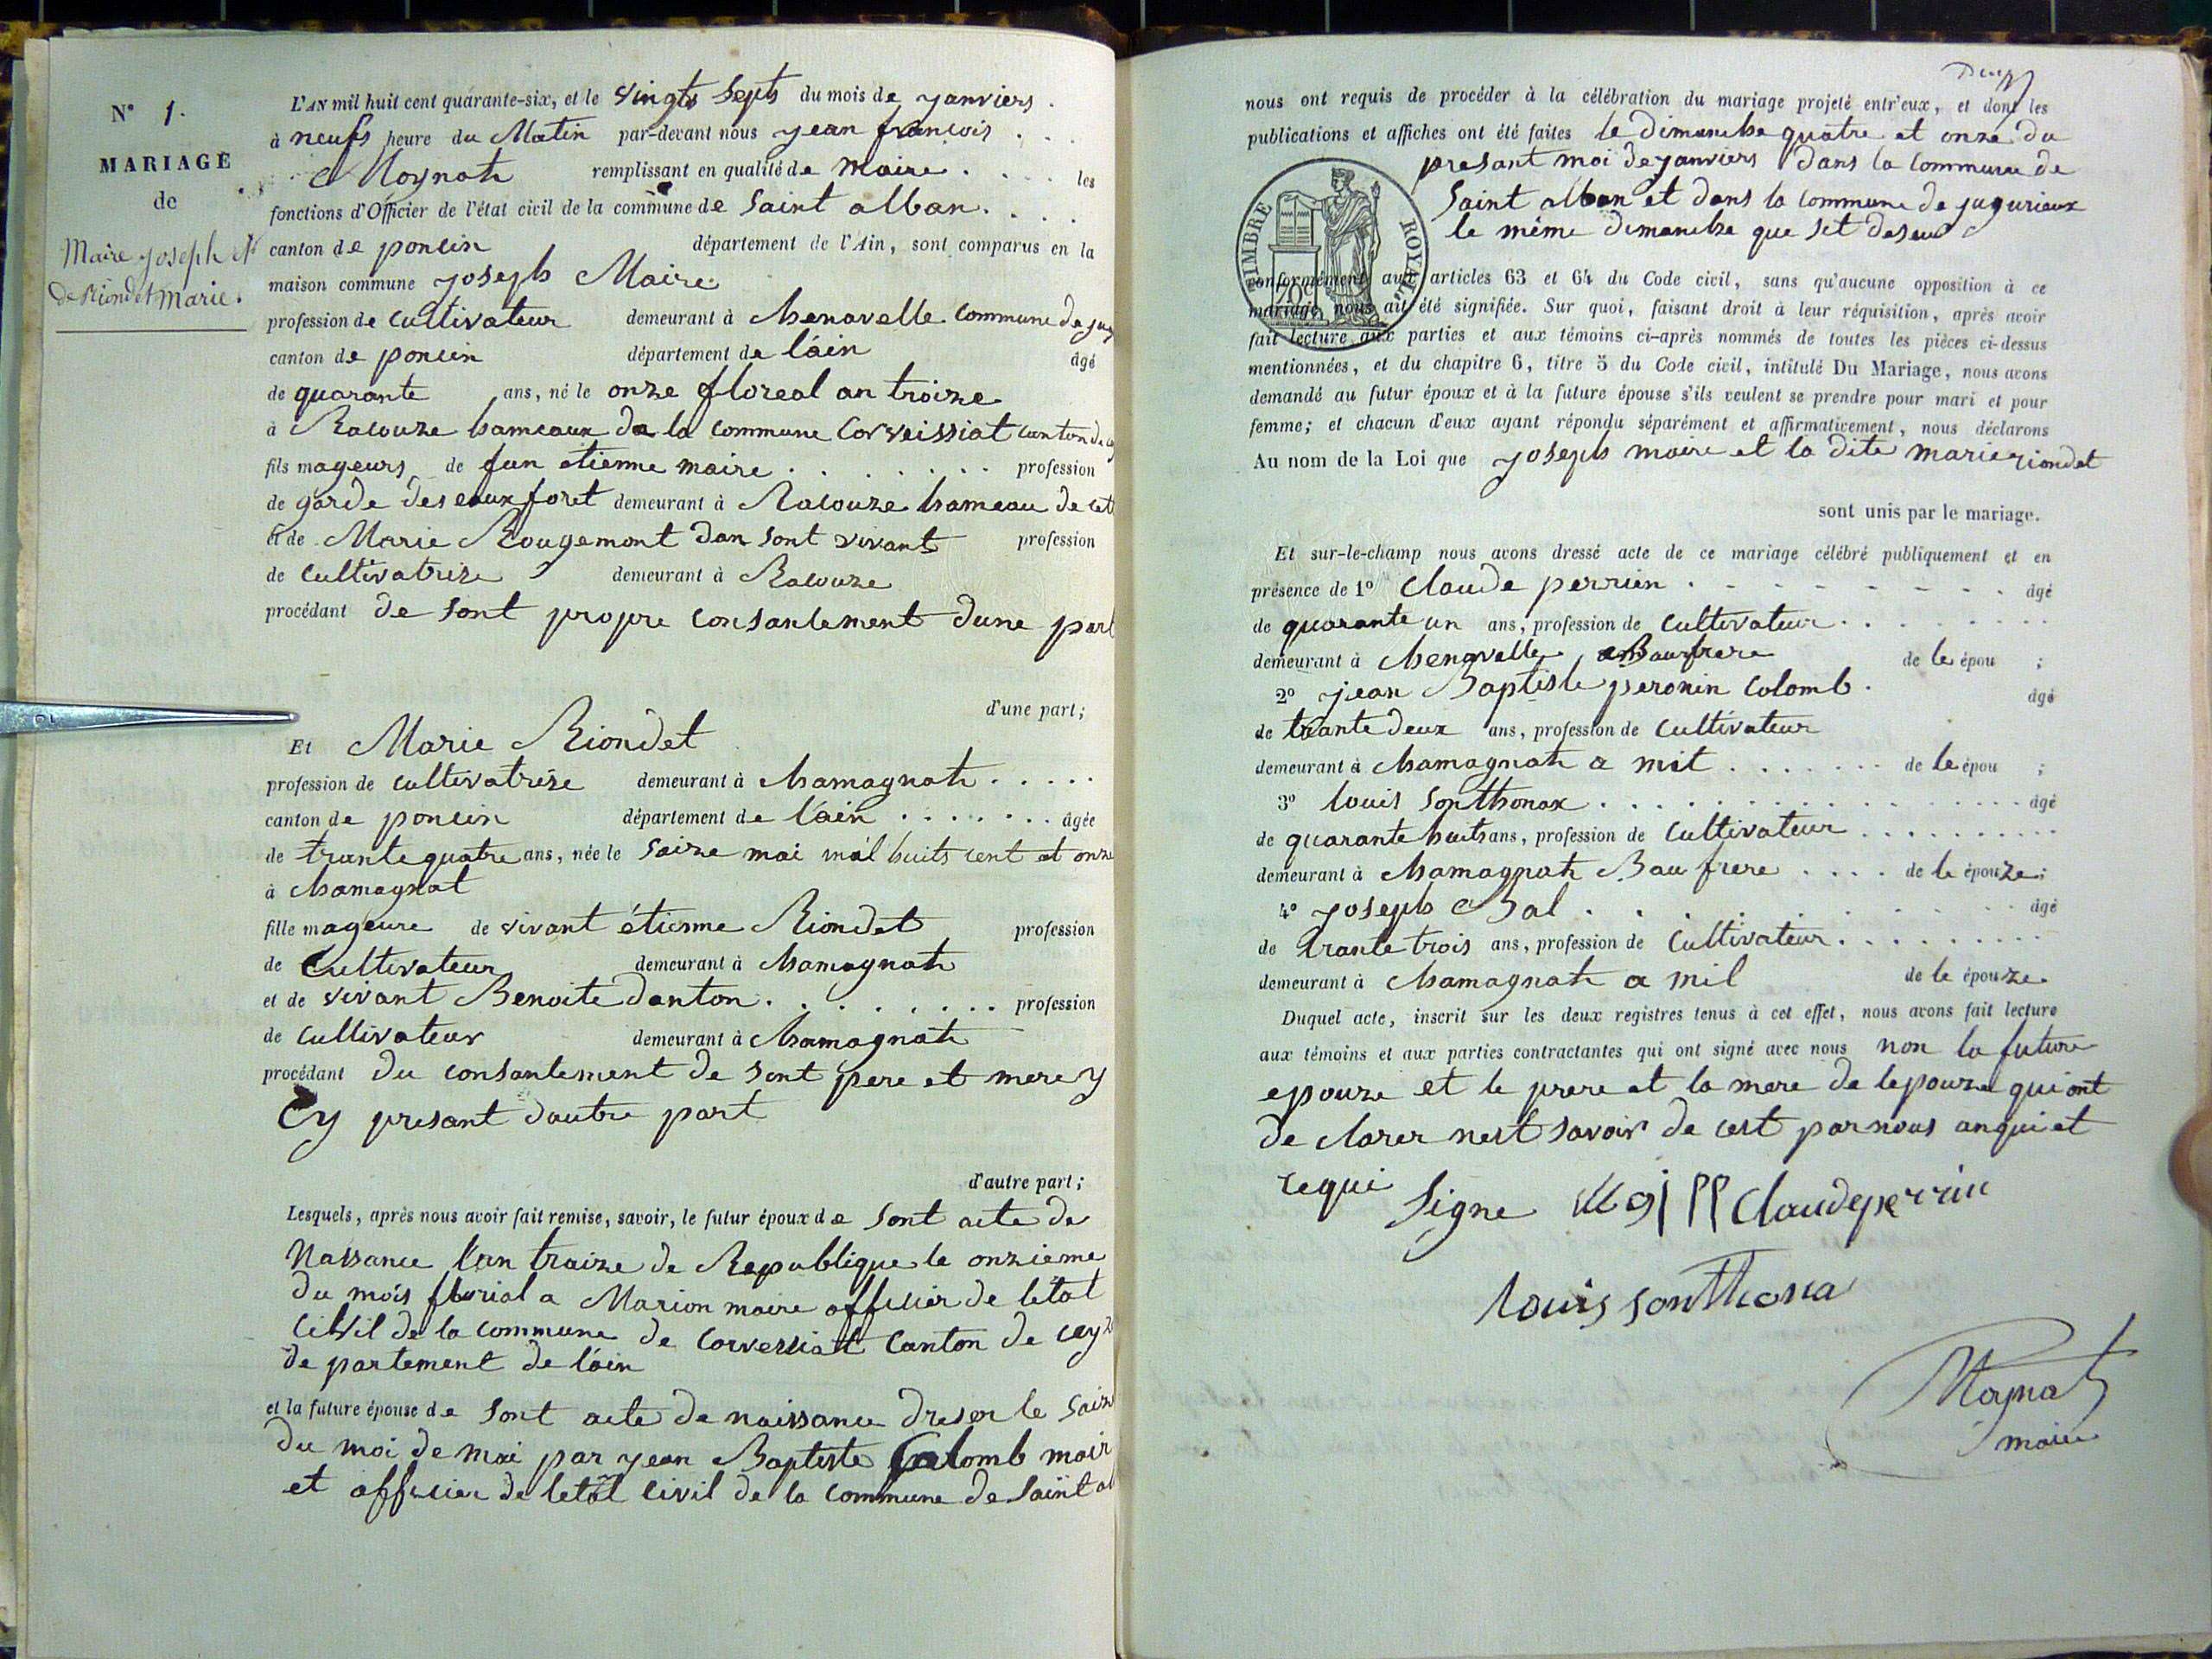 N° 1.
MARIAGE
de
Maire joseph et
de Riondet marie.
L'AN mil huit cent quarante-six, et le vingts septs du mois de janviers.
à neufs heure du Matin par-devant nous jean francois
Moynat remplissant en qualité de maire . . . . les
fonctions d'Officier de l'état civil de la commune de Saint alban. . . .
canton de poncin département de l'Ain, sont comparus en la
maison commune joseph Maire
profession de cultivateur demeurant à chenavelle commune de juj
canton de poncin département de l'ain âgé
de quarante ans, né le onze floreal an troize
à Racouze hameaux de la commune Corveissiat canton de
fils mageurs de fun etienne maire . . . . . . . profession
de garde des eaux foret demeurant à Racouze hameau de cett
et de Marie Rougemont dan sont vivant profession
de cultivatrize demeurant à Racouze
procédant de sont propre consantement dune part
d'une part;
Et Marie Riondet
profession de cultivatrize demeurant à chamagnat . . . . .
canton de poncin département de l'ain . . . . . . . âgée
de trante quatre ans, née le saize mai mil huits cent et onze
à chamagnat
fille mageure de vivant étienne Riondet profession
de Cultivateur demeurant à chamagnat
et de vivant Benoite danton . . . . . . . . profession
de cultivateur demeurant à chamagnat
procédant du consantement de sont pere et mere y
Cy presant dautre part
d'autre part;
Lesquels, après nous avoir fait remise, savoir, le futur époux de sont acte de
Naissance l'an traize de Republique le onzieme
du mois florial a Marion maire officier de letat
Civil de la commune de corvessiat canton de ceyz
de partement de l'ain
et la future épouse de sont acte de naissance dreser le saize
du moi de mai par jean Baptiste Colomb mair
et afficier de letat civil de la commune de saint al
nous ont requis de procéder à la célébration du mariage projeté entr'eux, et dont les
publications et affiches ont été faites le dimanche quatre et onze du
presant moi de janviers dans la commune de
Saint alban et dans la commune de jugurieux
le même dimanche que set deseu
TIMBRE ROYAL
conformément aux articles 63 et 64 du Code civil, sans qu'aucune opposition à ce
mariage nous ait été signifiée. Sur quoi, faisant droit à leur réquisition, après avoir
fait lecture aux parties et aux témoins ci-après nommés de toutes les pièces ci-dessus
mentionnées, et du chapitre 6, titre 5 du Code civil, intitulé Du Mariage, nous avons
demandé au futur époux et à la future épouse s'ils veulent se prendre pour mari et pour
femme; et chacun d'eux ayant répondu séparément et affirmativement, nous déclarons
Au nom de la Loi que joseph maire et la dite marie riondet
sont unis par le mariage.
Et sur-le-champ nous avons dressé acte de ce mariage célébré publiquement et en
présence de 1° Claude perrien . - - - - - - . âgé
de quarante un ans, profession de cultivateur . . . . . . . .
demeurant à chenavelle Baufrere de le épou ;
2° jean Baptiste peronin colomb . âgé
de trante deux ans, profession de cultivateur
demeurant à chamagnat a mit . . . . . . . de le épou ;
3° louis Sonthonax . . . . . . . . . . . . . . . . âgé
de quarante huits ans, profession de cultivateur . . . . . . . . . .
demeurant à chamagnat Bau frere . . . . de le épouze;
4° joseph Bal . . . . . . . . . . . âgé
de trante trois ans, profession de cultivateur . . . . . . . . .
demeurant à chamagnat a mil de le épouze.
Duquel acte, inscrit sur les deux registres tenus à cet effet, nous avons fait lecture
aux témoins et aux parties contractantes qui ont signé avec nous non la future
epouze et le prere et la mere de lepouze qui ont
de clarer nest savoir de cest par nous anquiet
requi
Signe Claude perrin
Louis sonthona
Moynat
maire